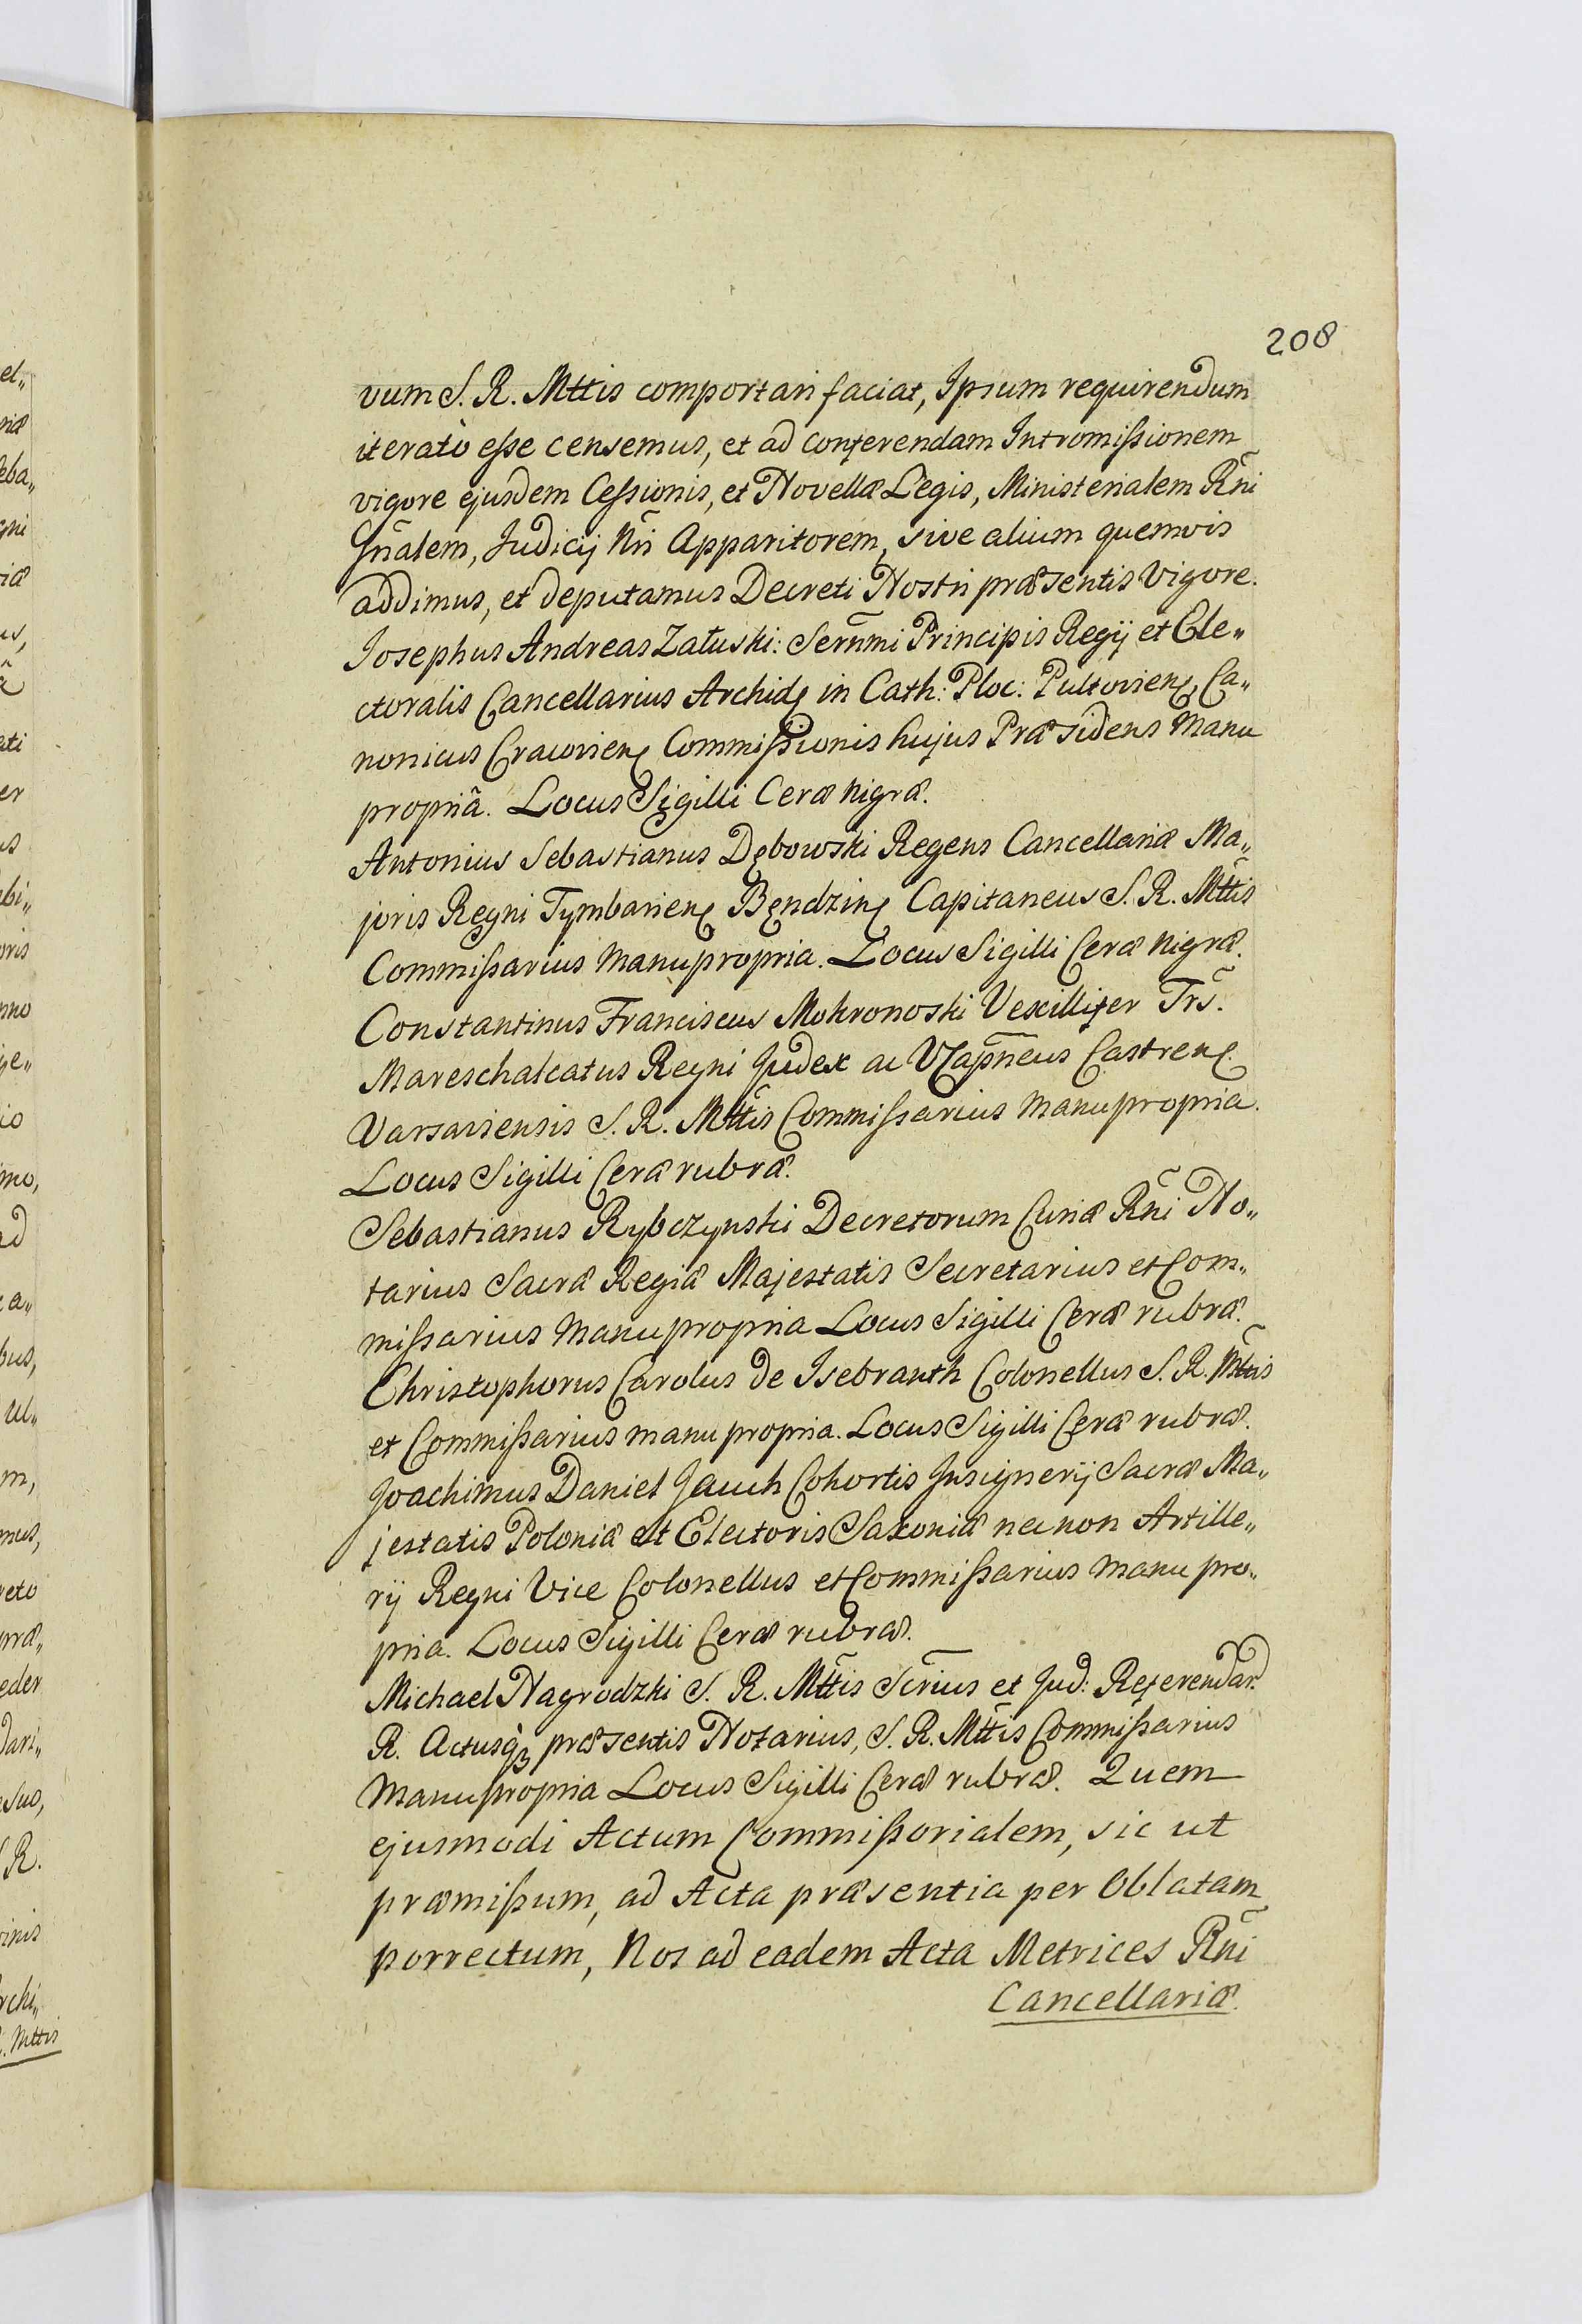 208
vum S. R. Mttis comportari faciat, Ipsum requirendum
iteratò eſse censemus, et ad conferendam Intromiſsionem
vigore ejusdem Ceſsionis, et Novellæ Legis, Ministerialem Rñi
Gñalem, Judicij Nri Apparitorem, sive alium quemvis
addimus, et deputamus Decreti Nostri præsentis Vigore.
Josephus Andreas Załuski: Sernmi Principis Regij et Ele„
ctoralis Cancellarius Archid in Cath: Ploc: Pultovien, Ca„
nonicus Cracovien Commiſsionis hujus Præsidens Manu
propriâ. Locus Sigilli Ceræ Nigræ.
Antonius Sebastianus Dębowski Regens Cancellariæ Ma„
joris Regni Tymbarien Bendzin Capitaneus S. R. Mttis
Commiſsarius Manupropria. Locus Sigilli Ceræ Nigræ.
Constantinus Franciscus Mokronoski Vexillifer Trs.
Mareschalcatus Regni Judex ac VCapneus Castren
Varsaviensis S. R. Mttis Commiſsarius Manupropria.
Locus Sigilli Ceræ rubræ.
Sebastianus Rybczynski Decretorum Curiæ Rñi No„
tarius Sacræ Regiæ Majestatis Secretarius et Com„
miſsarius Manupropria Locus Sigilli Ceræ rubræ.
Christophorus Carolus de Isebranth Colonellus S. R. Mttis
et Commiſsarius manu propria. Locus Sigilli Ceræ rubræ.
Joachimus Daniel Jauch Cohortis Insignerij Sacræ Ma„
jestatis Poloniæ et Electoris Saxoniæ necnon Artille„
rij Regni Vice Colonellus et Commiſsarius Manu pro„
pria. Locus Sigilli Ceræ rubræ.
Michael Nagrodzki S. R. Mttis Scrius et Jud: Referendar.
R. Actusq3 præsentis Notarius, S. R. Mttis Commiſsarius
Manupropria Locus Sigilli Ceræ rubræ. Quem
ejusmodi Actum Commiſsorialem, sic ut
præmiſsum, ad Acta præsentia per Oblatam
porrectum, Nos ad eadem Acta Metrices Rñi
Cancellariæ.